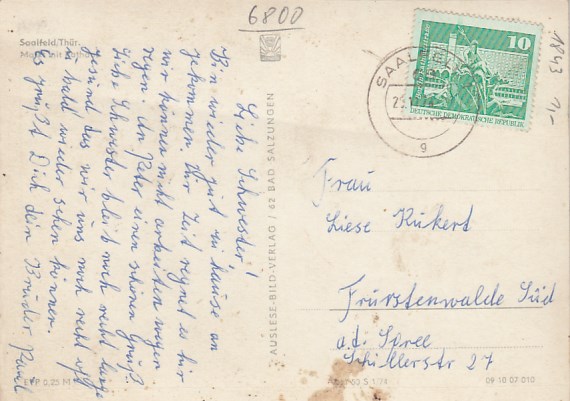 6800
Saalfeld, Thür.
Liebe Schwester!
Bin wieder gut zu Hause an
gekommen. Zur Zeit regnet es hir
wir können nicht arbeiten wegen
regen. An Peter einen schönen Gruß.
Liebe Schwester bleib noch recht lange
gesund das wir uns noch recht oft
u bald wieder sehen können.
Es grüßt Dich dein Bruder Paul
EVP 0,25 M
AUSLESE-BILD-VERLAG / 62 BAD SALZUNGEN
10
DEUTSCHE DEMOKRATISCHE REPUBLIK
SAALFELD
g
1843
1,-
Frau
Liese Kukert
Fürstenwalde Süd
a.d. Spree
Schillerstr 27
09 10 07 010